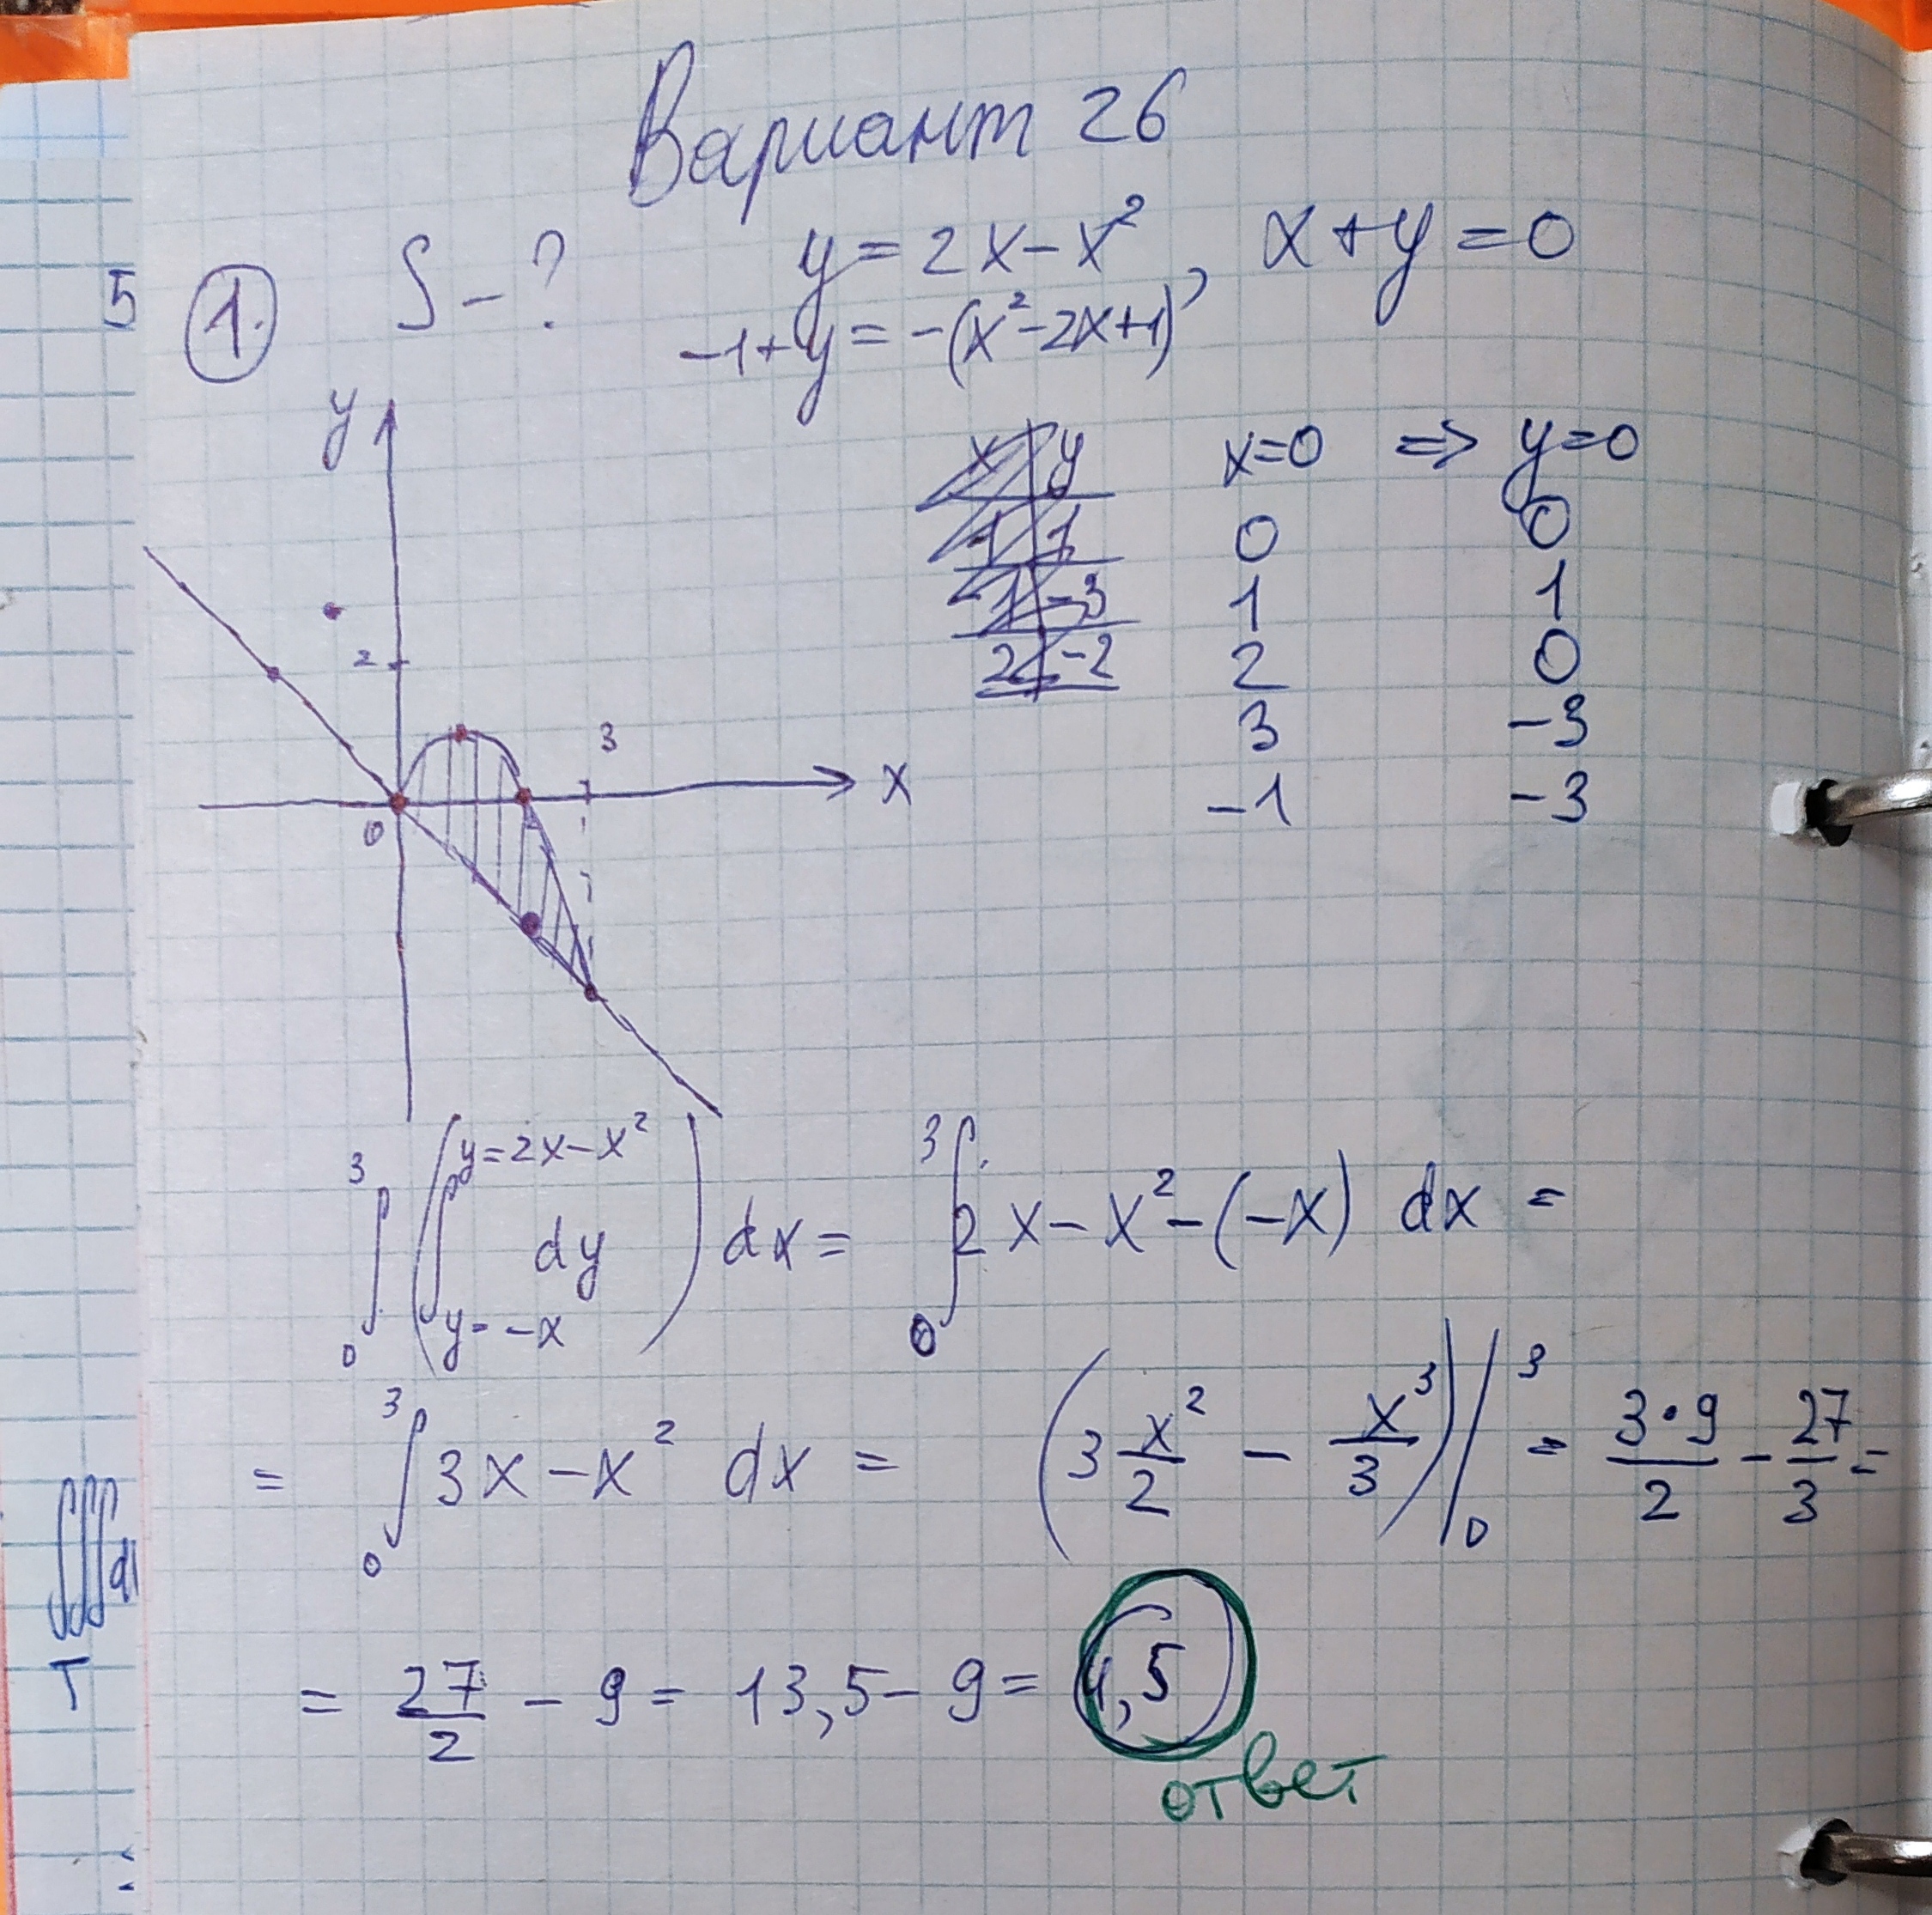 Вариант 26
5
1. S - ? y = 2x - x², x + y = 0
-1 + y = -(x² - 2x + 1)
y
x y
1 1
-1 -3
2 -2
x=0 ⇒ y=0
0 0
1 1
2 0
3 -3
-1 -3
2
3
x
0
2
∫₀³ ( ∫_{y=-x}^{y=2x-x²} dy ) dx = ∫₀³ 2x - x² - (-x) dx =
= ∫₀³ 3x - x² dx = (3 x²/2 - x³/3) |₀³ = 3·9/2 - 27/3 =
∭ d
T
= 27/2 - 9 = 13,5 - 9 = 4,5
ответ